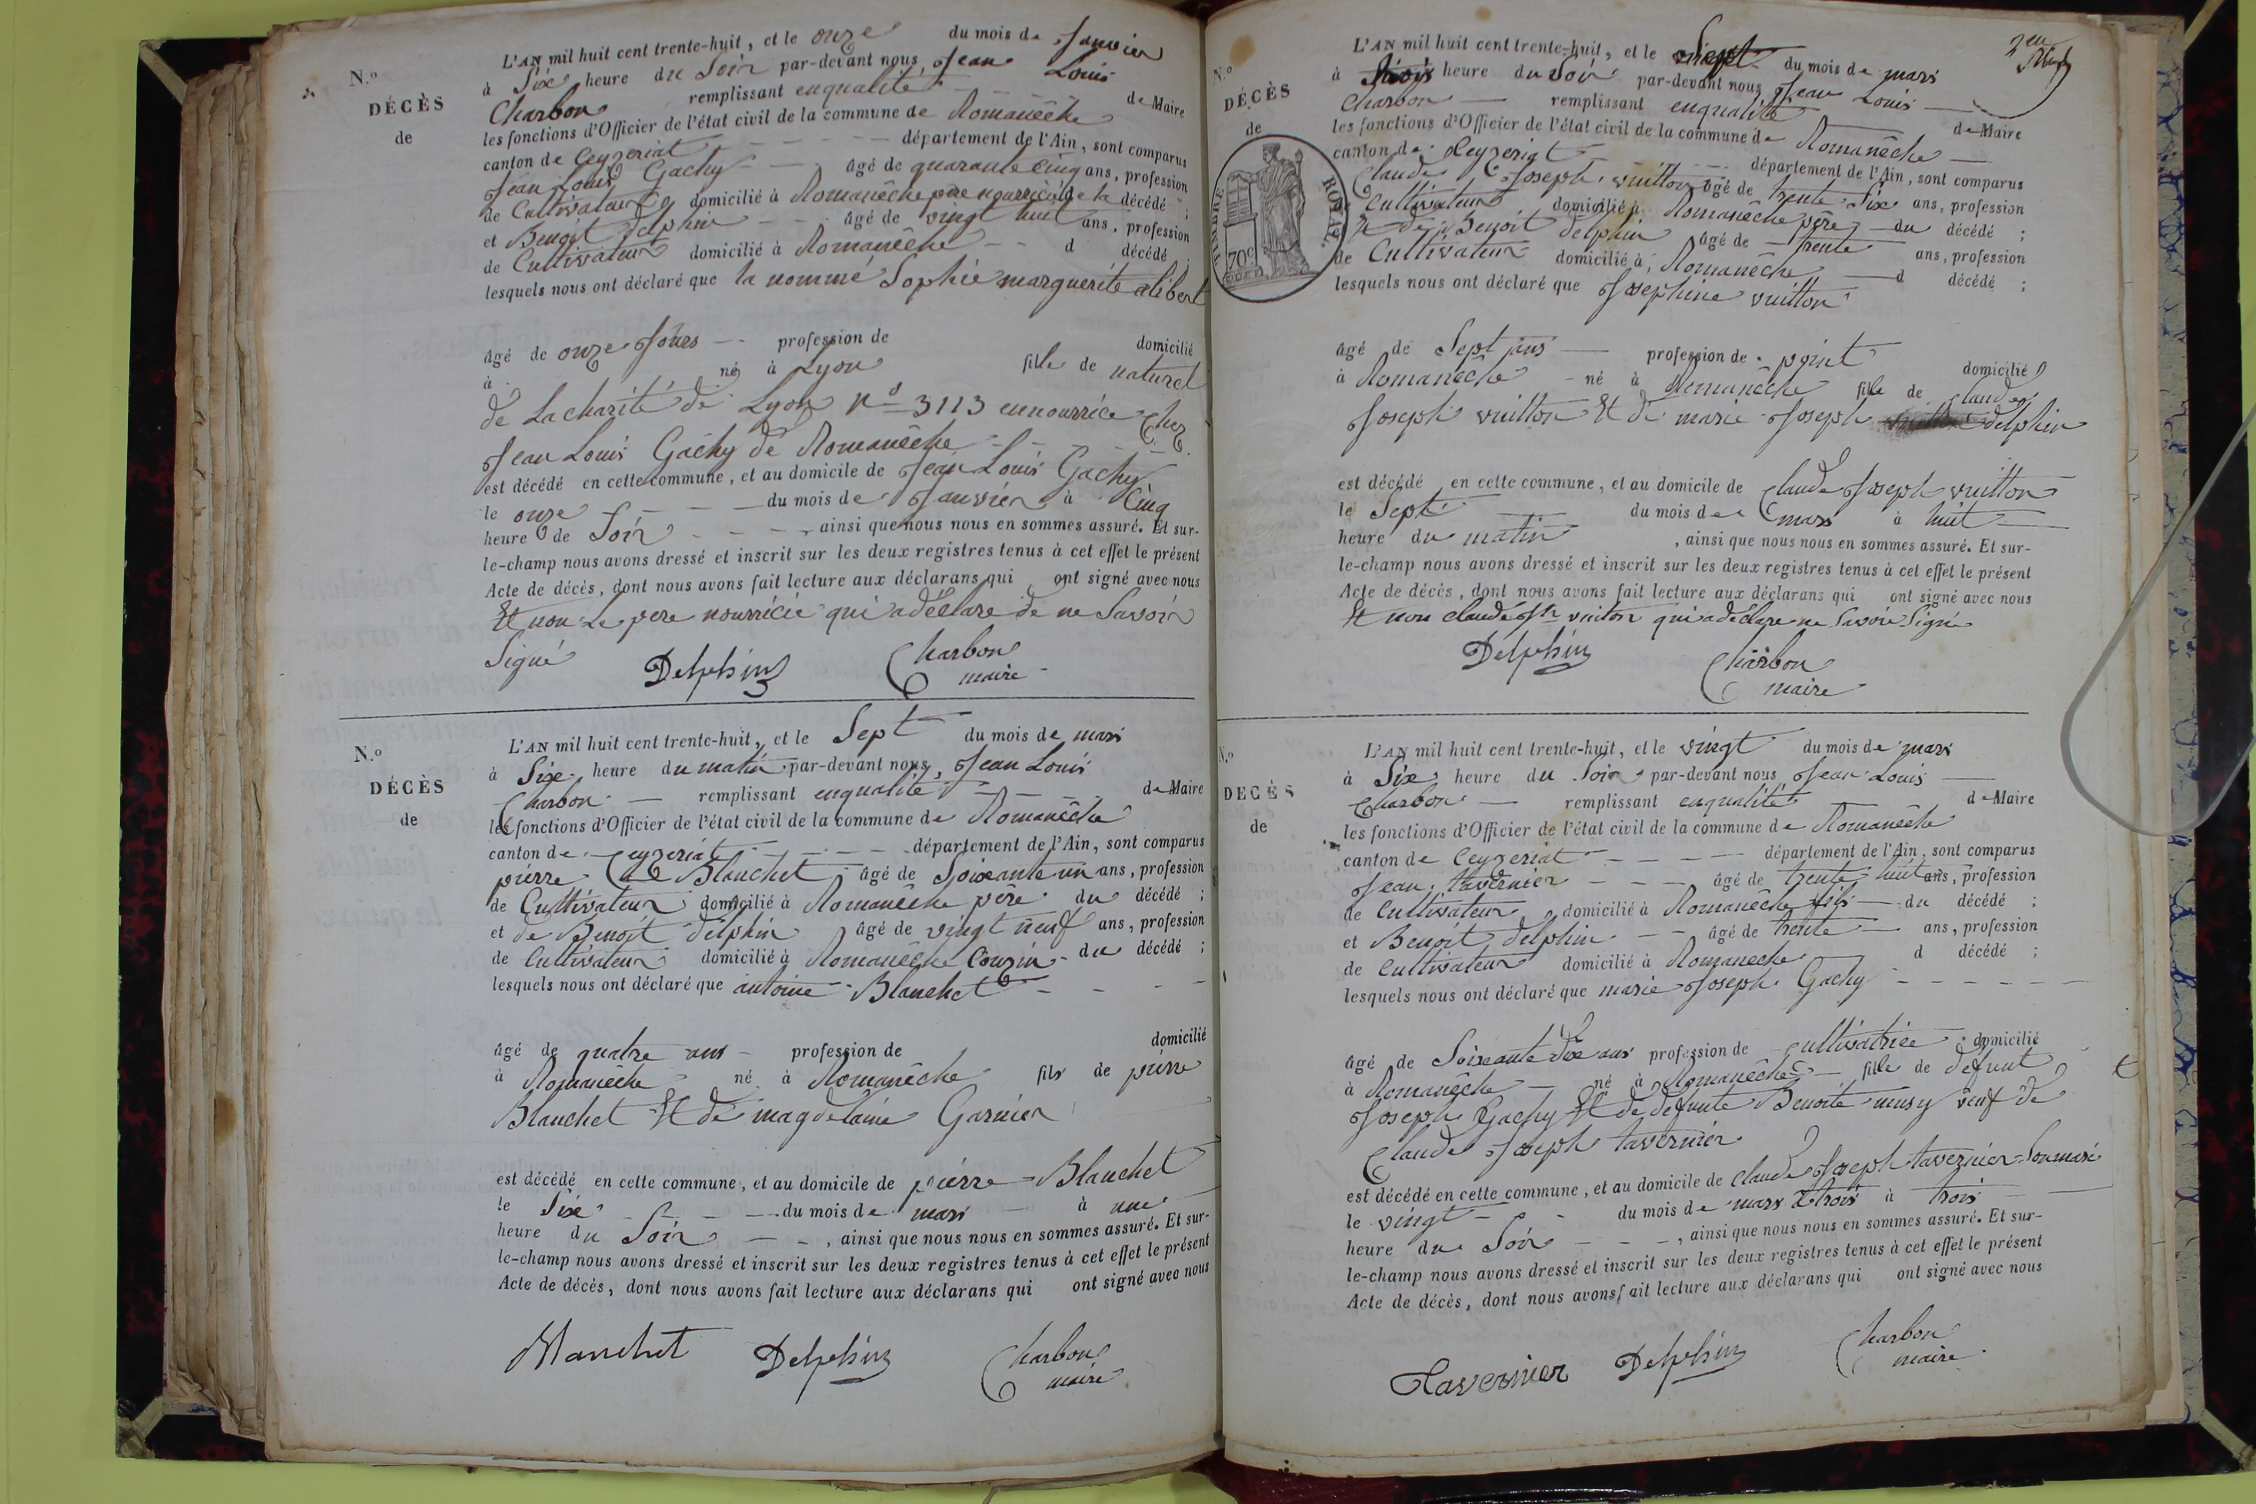 N.º
DÉCÈS
de
L'AN mil huit cent trente-huit, et le onze du mois de Janvier
à Six heure du Soir par-devant nous Jean Louis
Charbon remplissant enqualité de Maire
les fonctions d'Officier de l'état civil de la commune de Romanêche
canton de Ceyzeriat département de l'Ain, sont comparus
Jean Louis Gachy âgé de quarante cinq ans, profession
de Cultivateur domicilié à Romanêche père nourricié de la décédé ;
et Benoit delphin âgé de vingt huit ans, profession
de Cultivateur domicilié à Romanêche d décédé ;
lesquels nous ont déclaré que la nommé Sophie marguerite alibert
âgé de onze Jours profession de domicilié
à né à Lyon fille de naturel
de Lacharité de Lyon Nº 3113 ennourrice Chez
Jean Louis Gachy de Romanêche
est décédé en cette commune, et au domicile de Jean Louis Gachy
le onze du mois de Janvier à Cinq
heure de Soir ainsi que nous nous en sommes assuré. Et sur-
le-champ nous avons dressé et inscrit sur les deux registres tenus à cet effet le présent
Acte de décès, dont nous avons fait lecture aux déclarans qui ont signé avec nous
Et non Le pere nourricié qui a déclare de ne Savoir
Signé Delphin Charbon
maire
N.º
DÉCÈS
de
L'AN mil huit cent trente-huit, et le Sept du mois de mars
à Six heure du matin par-devant nous, Jean Louis
Charbon remplissant enqualité de Maire
les fonctions d'Officier de l'état civil de la commune de Romanêche
canton de Ceyzeriat département de l'Ain, sont comparus
pierre Blanchet âgé de Soixante un ans, profession
de Cultivateur domicilié à Romanêche père du décédé ;
et de Benoit delphin âgé de vingt neuf ans, profession
de Cultivateur domicilié à Romanêche Couzin du décédé ;
lesquels nous ont déclaré que antoine Blanchet
âgé de quatre ans profession de domicilié
à Romanêche né à Romanêche fils de pierre
Blanchet Et de magdelaine Garnier
est décédé en cette commune, et au domicile de pierre Blanchet
le Six du mois de mars à une
heure du Soir , ainsi que nous nous en sommes assuré. Et sur-
le-champ nous avons dressé et inscrit sur les deux registres tenus à cet effet le présent
Acte de décès, dont nous avons fait lecture aux déclarans qui ont signé avec nous
Blanchet Delphin Charbon
maire
N.º
DÉCÈS
de
TIMBRE ROYAL.
70c
L'AN mil huit cent trente-huit, et le Sept du mois de mars
à trois heure du Soir par-devant nous Jean Louis
Charbon remplissant enqualité de Maire
les fonctions d'Officier de l'état civil de la commune de Romanêche
canton de Ceyzeriat département de l'Ain, sont comparus
Claude Joseph vuitton âgé de trente Six ans, profession
Cultivateur domicilié à Romanêche père du décédé ;
Et de Benoit delphin âgé de trente ans, profession
de Cultivateur domicilié à Romanêche d décédé ;
lesquels nous ont déclaré que Josephine vuitton
âgé de Sept ans profession de point domicilié
à Romanêche né à Romanêche fille de Claude
Joseph vuitton Et de marie Joseph delphin
est décédé en cette commune, et au domicile de Claude Joseph vuitton
le Sept du mois de mars à huit
heure du matin , ainsi que nous nous en sommes assuré. Et sur-
le-champ nous avons dressé et inscrit sur les deux registres tenus à cet effet le présent
Acte de décès, dont nous avons fait lecture aux déclarans qui ont signé avec nous
Et non claude Jh vuiton qui a déclare ne Savoir Signé
Delphin Charbon
maire
N.º
DÉCÈS
de
L'AN mil huit cent trente-huit, et le vingt du mois de mars
à Six heure du Soir par-devant nous Jean Louis
Charbon remplissant enqualité de Maire
les fonctions d'Officier de l'état civil de la commune de Romanêche
canton de Ceyzeriat département de l'Ain, sont comparus
Jean tavernier âgé de trente huit ans, profession
de Cultivateur domicilié à Romanêche fils du décédé ;
et Benoit delphin âgé de trente ans, profession
de Cultivateur domicilié à Romanêche d décédé ;
lesquels nous ont déclaré que marie Joseph Gachy
âgé de Soixante Dix ans profession de cultivatrice domicilié
à Romanêche né à Romanêche fille de défunt
Joseph Gachy Et de defunte Benoite veuf de
Claude Joseph tavernier
est décédé en cette commune, et au domicile de Claude Joseph tavernier Son mari
le vingt du mois de mars à trois
heure du Soir , ainsi que nous nous en sommes assuré. Et sur-
le-champ nous avons dressé et inscrit sur les deux registres tenus à cet effet le présent
Acte de décès, dont nous avons fait lecture aux déclarans qui ont signé avec nous
Tavernier Delphin Charbon
maire